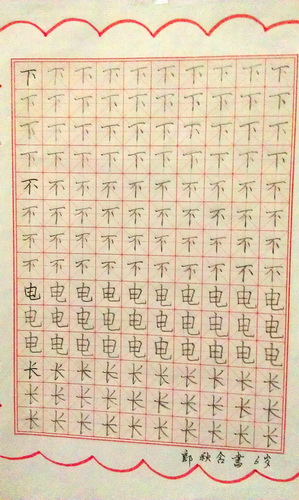 下下下下下下下下下下
下下下下下下下下下下
下下下下下下下下下下
下下下下下下下下下下
不不不不不不不不不不
不不不不不不不不不不
不不不不不不不不不不
不不不不不不不不不不
电电电电电电电电电电
电电电电电电电电电电
电电电电电电电电电电
长长长长长长长长长长
长长长长长长长长长长
长长长长长长长长长长
秋含書 6岁